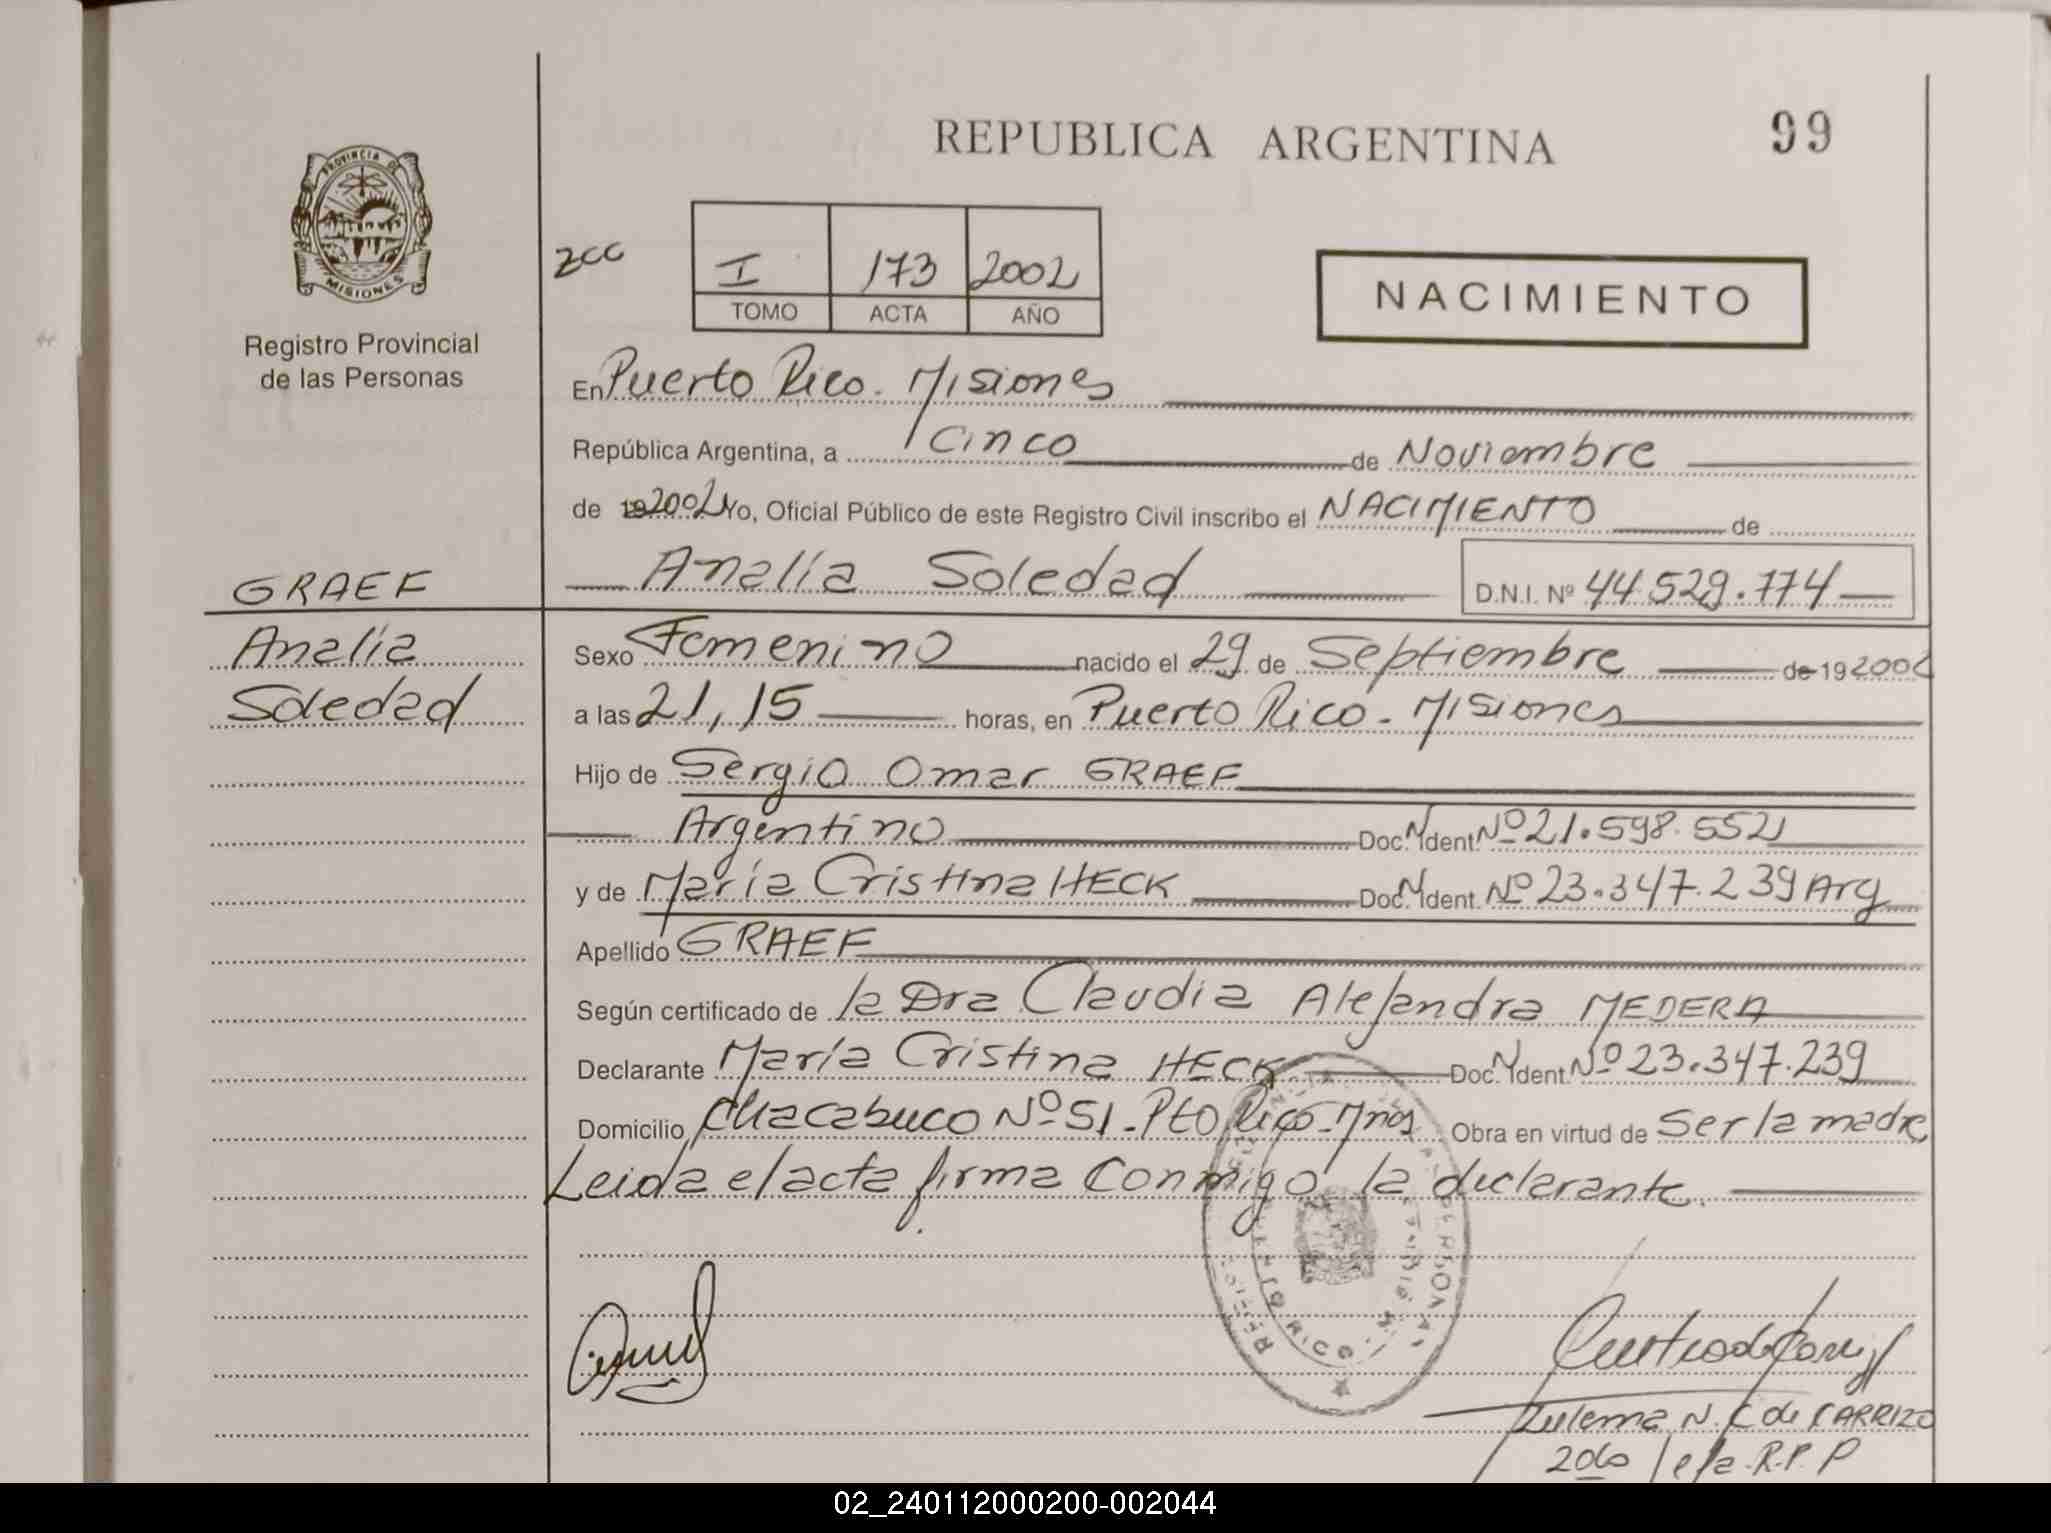 REPUBLICA ARGENTINA
99
PROVINCIA DE
MISIONES
Registro Provincial
de las Personas
zcc
I 173 2002
TOMO ACTA AÑO
NACIMIENTO
En Puerto Rico. Misiones
República Argentina, a Cinco de Noviembre
de 19 2002 Yo, Oficial Público de este Registro Civil inscribo el NACIMIENTO de
Analía Soledad D.N.I. Nº 44.529.774
GRAEF
Analía
Soledad
Sexo Femenino nacido el 29 de Septiembre de 19 2002
a las 21,15 horas, en Puerto Rico - Misiones
Hijo de Sergio Omar GRAEF
Argentino Doc. N Ident. Nº 21.598.552
y de María Cristina HECK Doc. N Ident. Nº 23.347.239 Arg
Apellido GRAEF
Según certificado de la Dra Claudia Alejandra MEDERA
Declarante María Cristina HECK Doc. N Ident. Nº 23.347.239
Domicilio Chacabuco Nº 51 - Pto Rico - Mnes Obra en virtud de Ser la madre
Leida el acta firma Conmigo la declarante.
Zulema N. C de CARRIZO
2do Jefa R.P.P
02_240112000200-002044